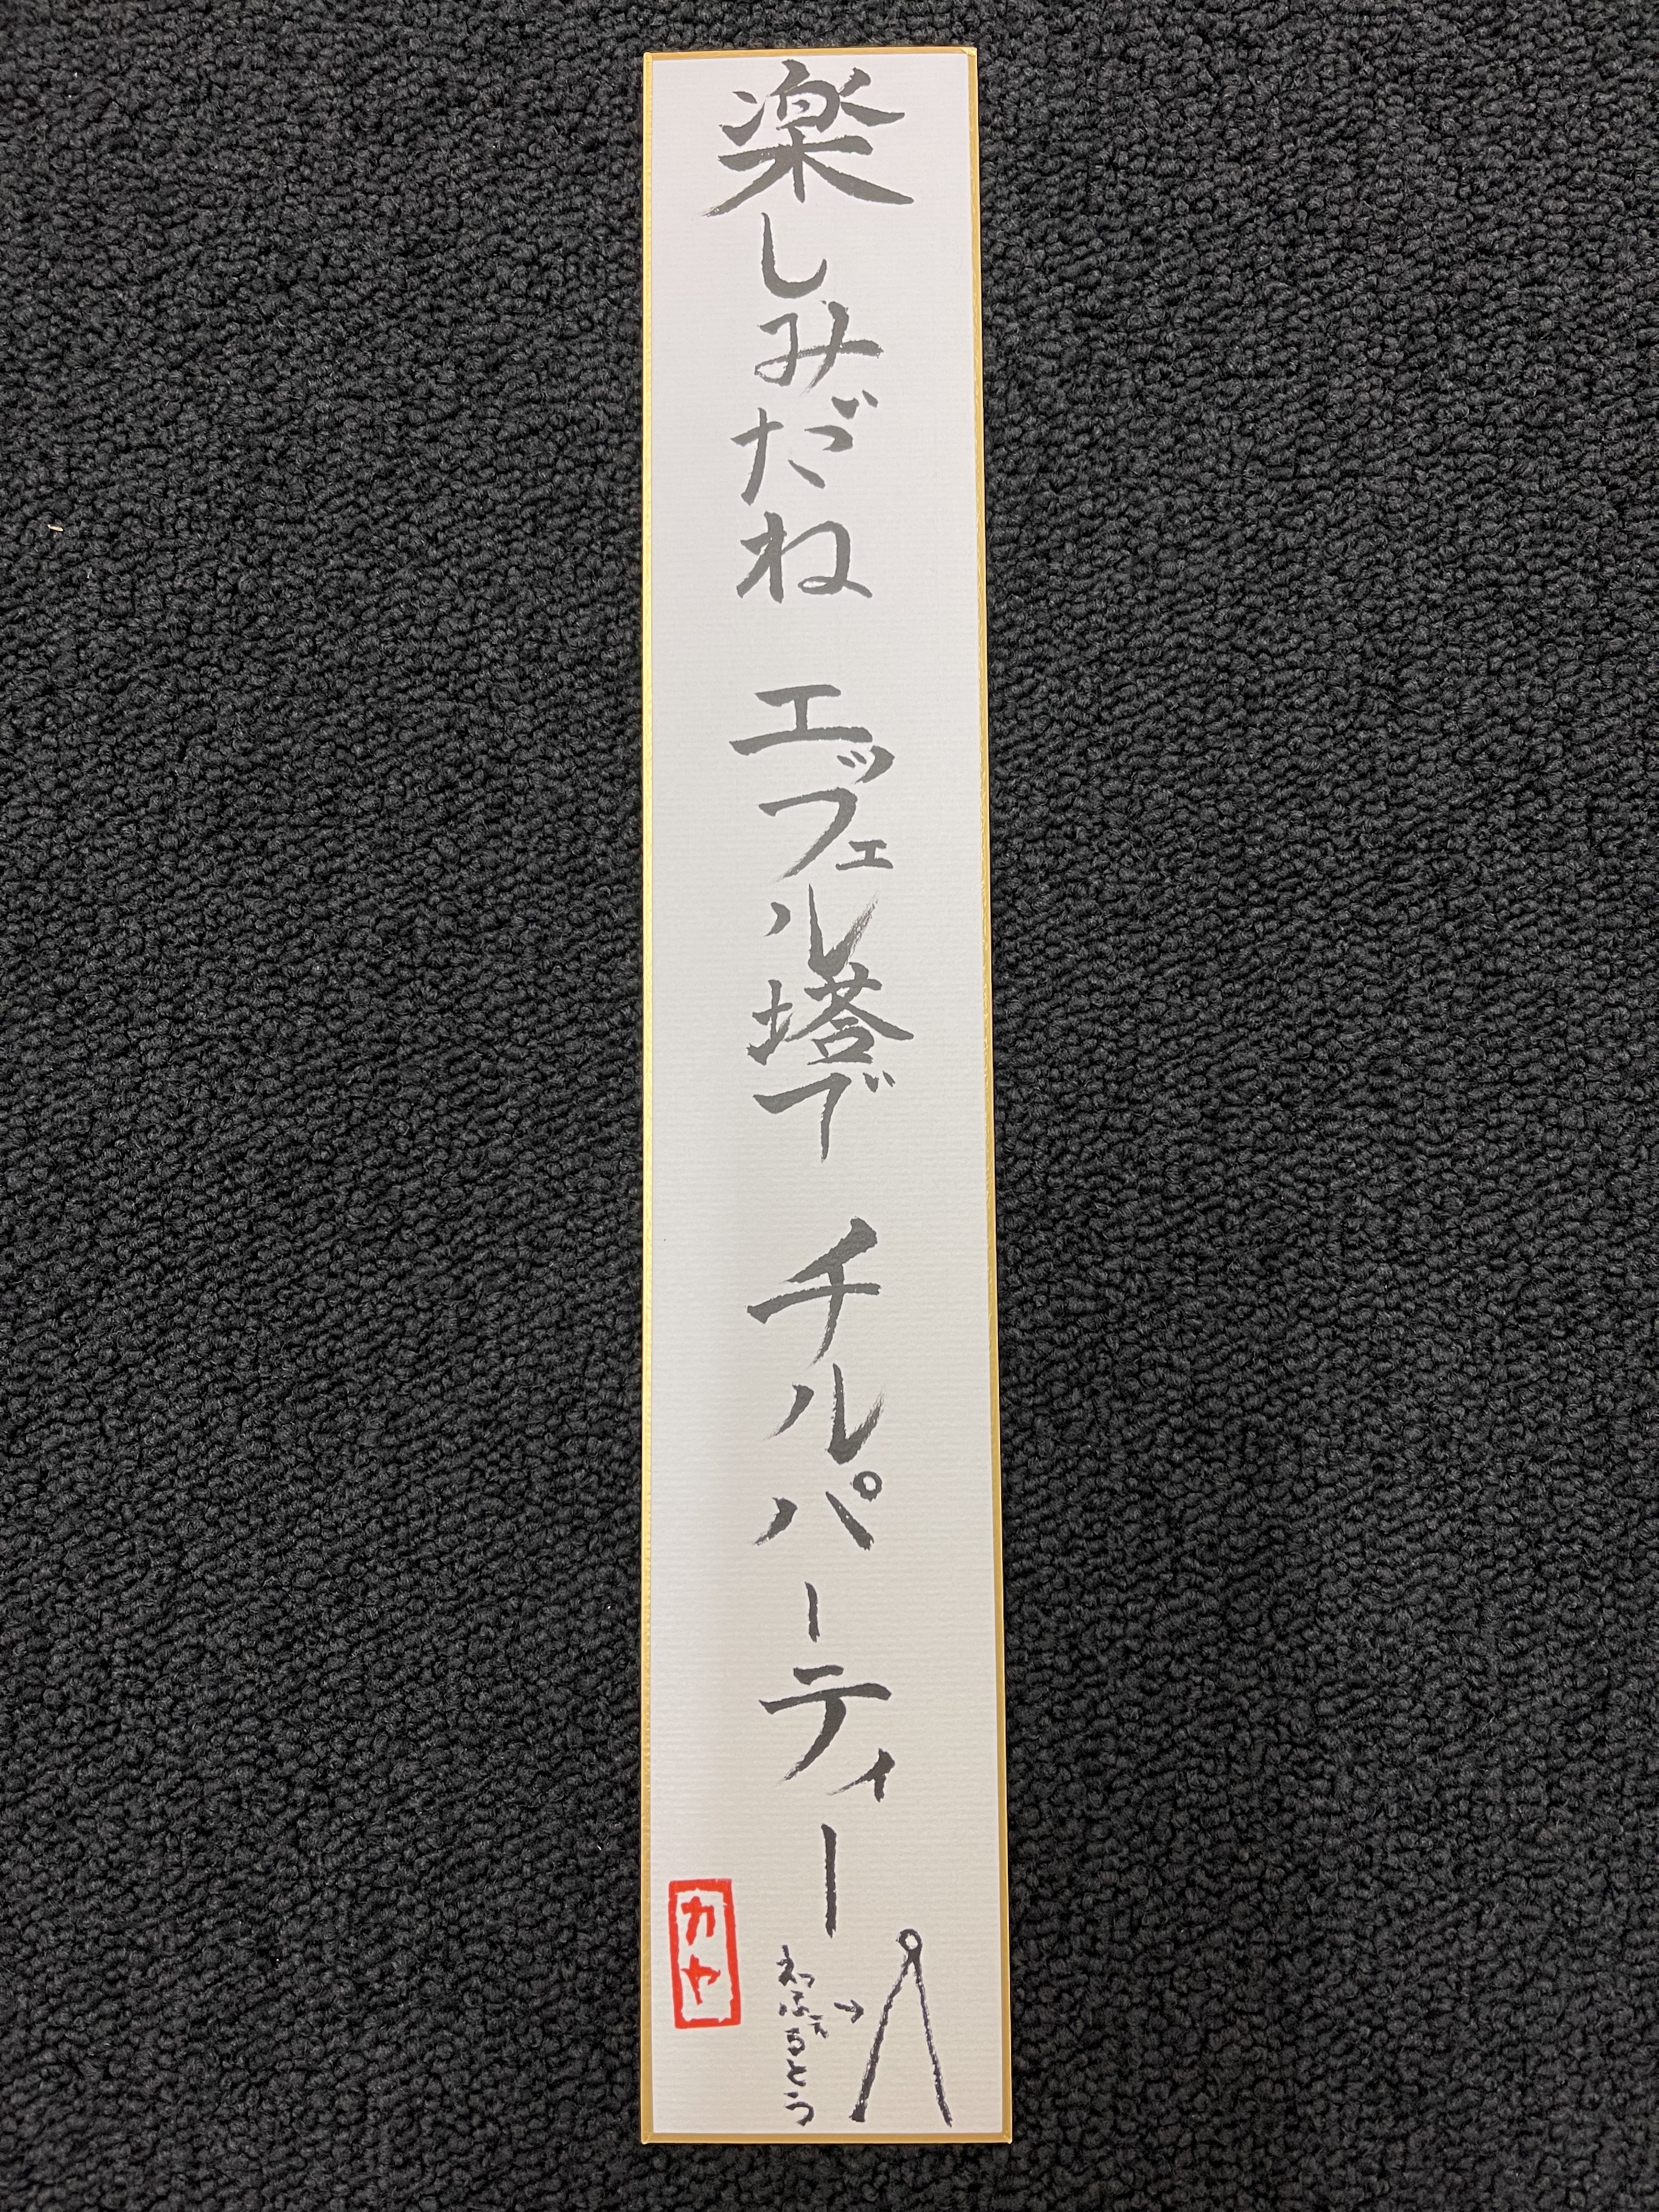 楽しみだね エッフェル塔で チルパーティー
えっふぇるとう→
カヤ